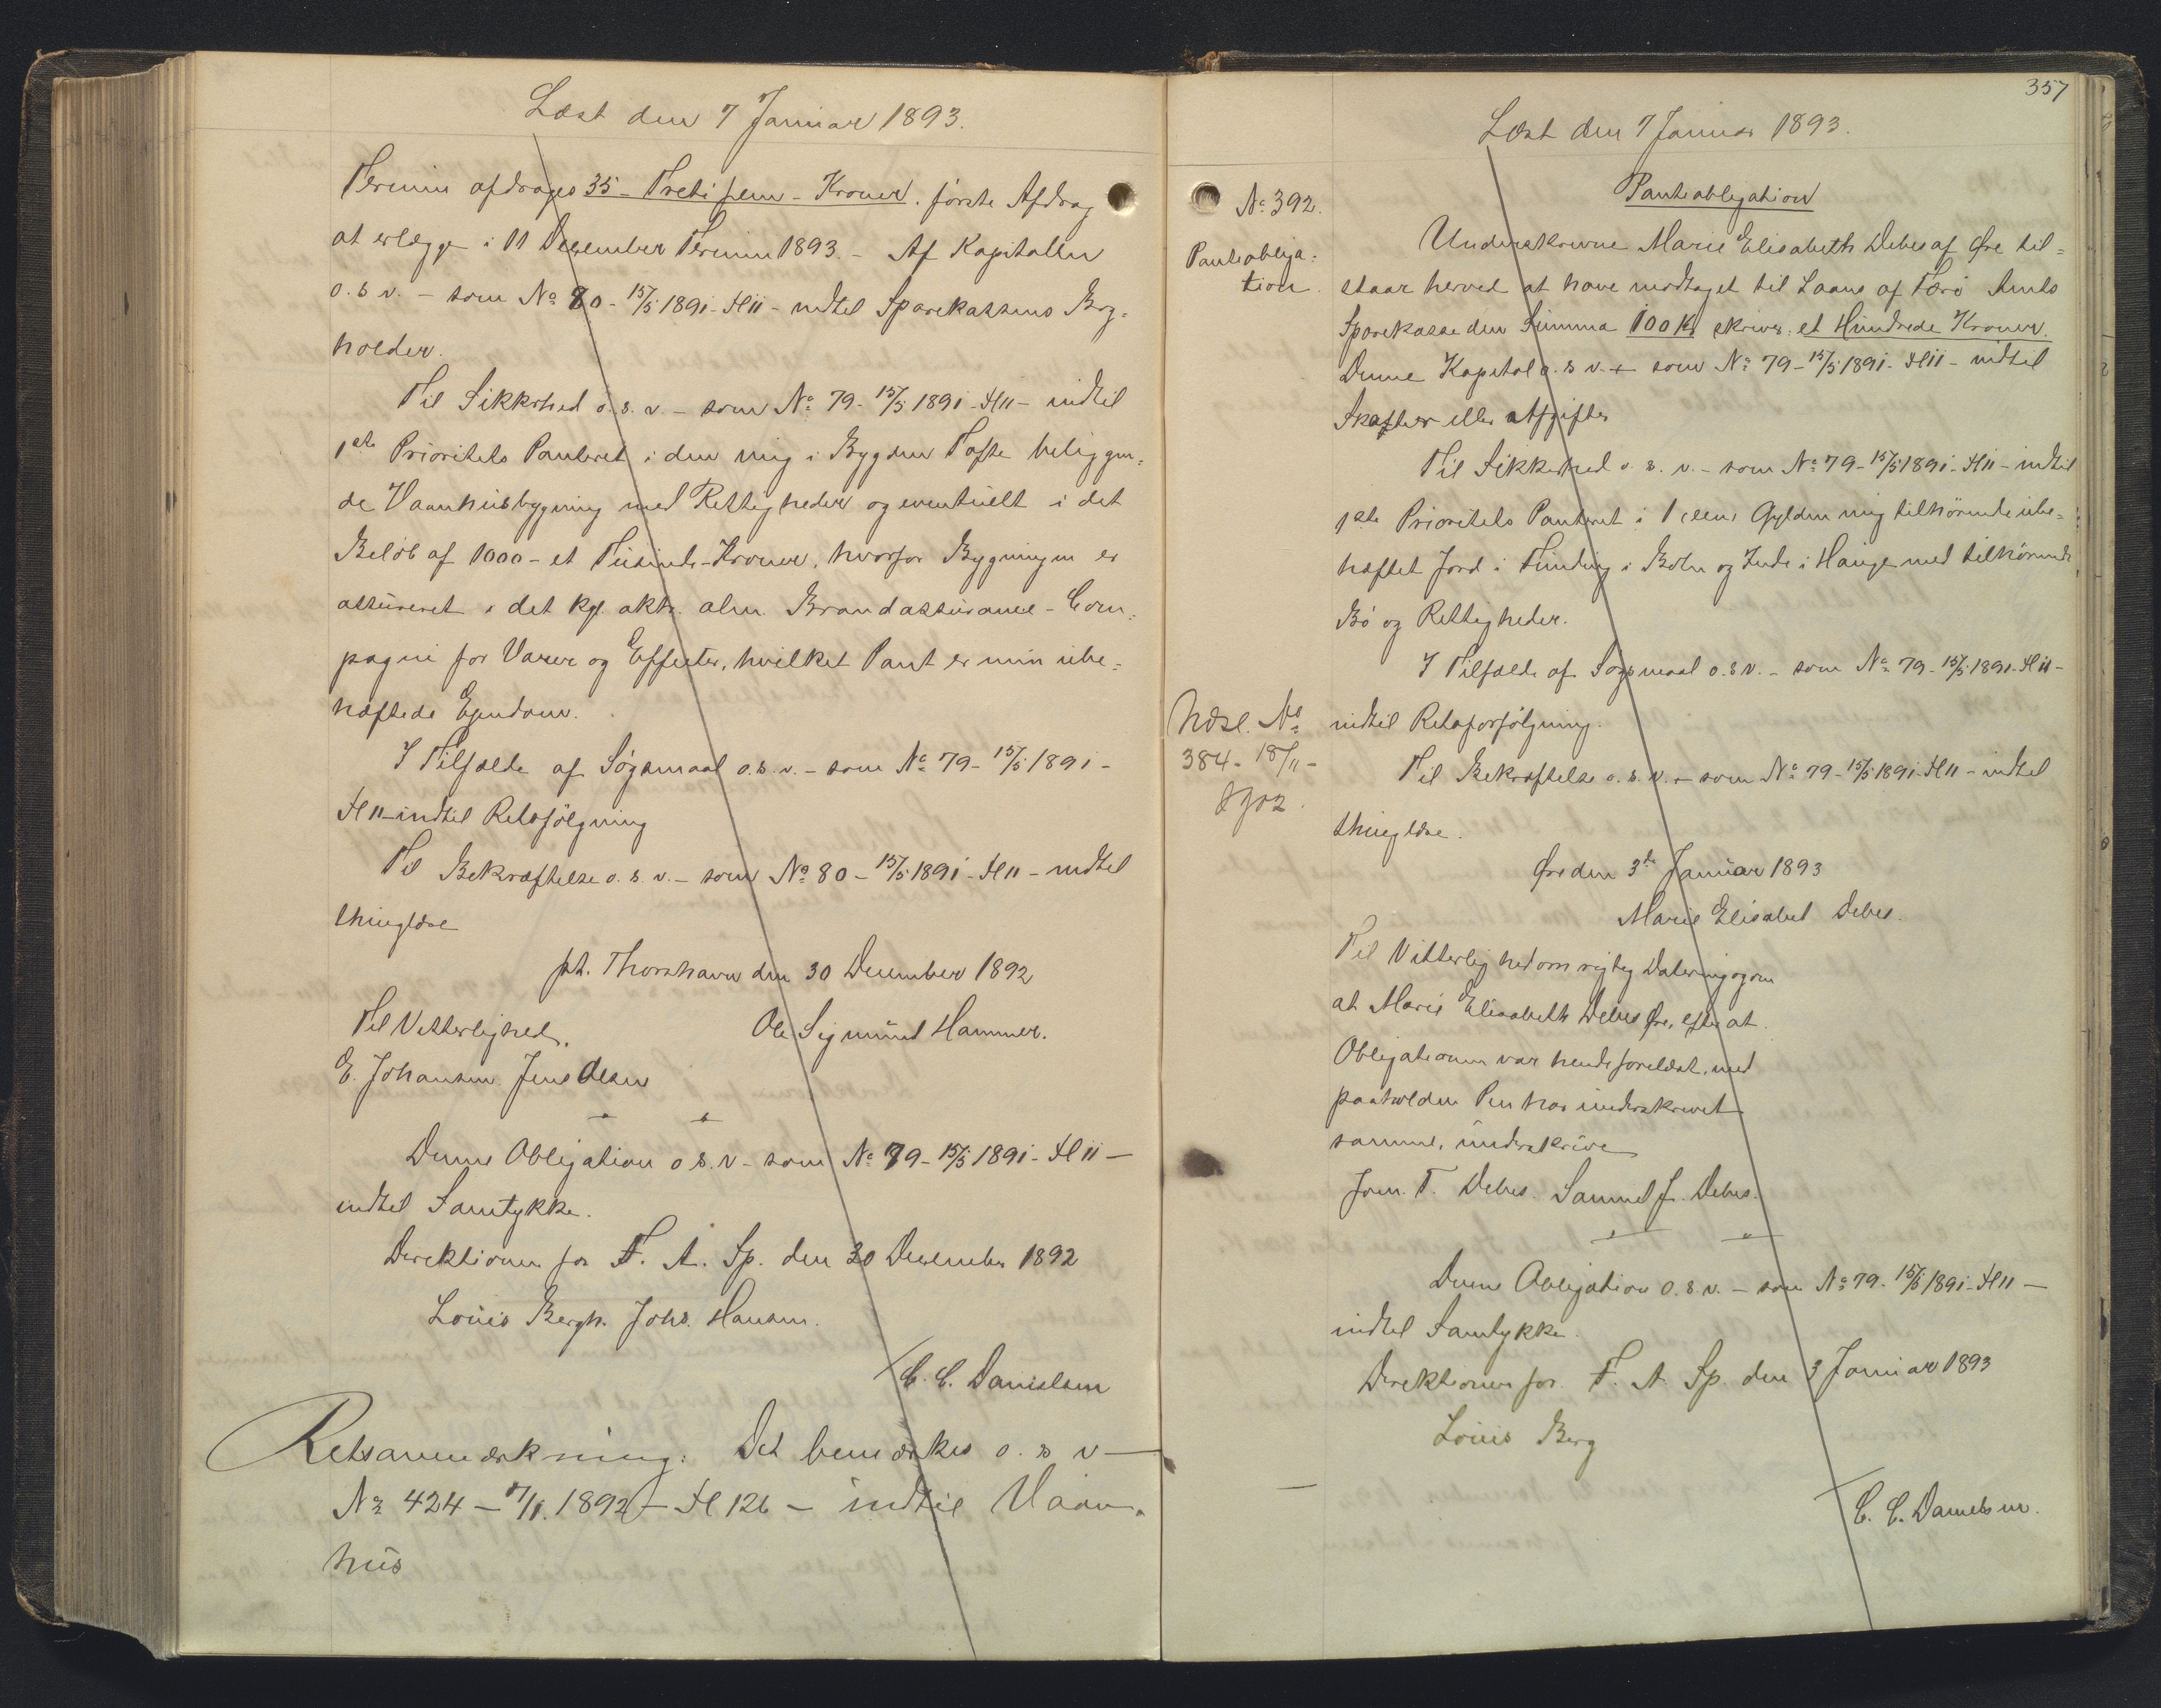 Læst den 7 Januar 1893.
Termin afdrages 35 - Treti fem - Kroner. første Afdrag
at erlægge i 11 December Termin 1893. - Af Kapitalen
o. s v. - som No 80 - 15/5 1891 - H 11 - indtil Sparekassens Bog=
holder.
Til Sikkrhed o. s. v. - som No 79 - 15/5 1891 - H 11 - indtil
1ste Prioritets Panteret i den mig i Bygden Tofte beliggen=
de Vaanhusbygning med Rettigheder og eventuelt i det
Beløb af 1000 - et Tusinde - Kroner, hvorfor Bygningen er
assureret i det kgl. oktr. alm. Brandassurance - Com=
pagni for Varer og Effecter, hvilket Pant er min ube=
hæftede Ejendom.
I Tilfælde af Søgsmaal o. s. v. - som No 79 - 15/5 1891 -
H 11 - indtil Retsfølgning
Til Bekræftelse o. s. v. - som No 80 - 15/5 1891 - H 11 - indtil
thinglæse
pt. Thorshavn den 30 December 1892
Til Vitterlighed. Ole Sigmund Hammer.
E. Johansen. Jens Olsen
Denne Obligation o s. v - som No 79 - 15/5 1891 - H 11 -
indtil Samtykke.
Direktionen for F. A. Sp. den 30 December 1892
Louis Bergh. Johs. Hansen.
C. C. Danielsen
Retsanmærkning: Det bemærkes o. s v -
No 424 - 1892 - H 126 - indtil Vaan=
hus
357
Læst den 7 Januar 1893.
No 392.
Panteobliga=
tion.
Panteobligation
Underskrevne Marie Elisabeth Debes af Øre til=
staar herved at have modtaget til Laans af Færø Amts
Sparekasse den Summa 100 Kr skriver et Hundrede Kroner.
Denne Kapital o. s v. - som No 79 - 15/5 1891 - H 11 - indtil
Skatter eller Afgifter
Til Sikkerhed o. s. v. - som No 79 - 15/5 1891 - H 11 - indtil
1ste Prioritets Panteret i 1 (een) Gylden mig tilhørende ube=
hæftet Jord i Funding i Botn og Inde i Hauge med tilhørende
Bø og Rettigheder.
I Tilfælde af Søgsmaal o. s v. - som No 79 - 15/5 1891 - H 11 -
indtil Retsforfølgning.
Til Bekræftelse o. s. v. - som No 79 - 15/5 1891 - H 11 - indtil
thinglæse.
Udsl. No
384 - 18/11 -
1902.
Øre den 3de Januar 1893
Marie Elisabet Debes.
Til Vitterlighed om rigtig Datering og om
at Marie Elisabeth Debes Øre, efter at
Obligationen var hende forelæst, med
paaholden Pen har underskrevet
samme, underskrive
Joen. T. Debes. Samuel J. Debes.
Denne Obligation o. s. v. - som No 79 - 15/5 1891 - H 11 -
indtil Samtykke.
Direktionen for F. A. Sp. den 3 Januar 1893
Louis Berg
C. C. Danielsen.